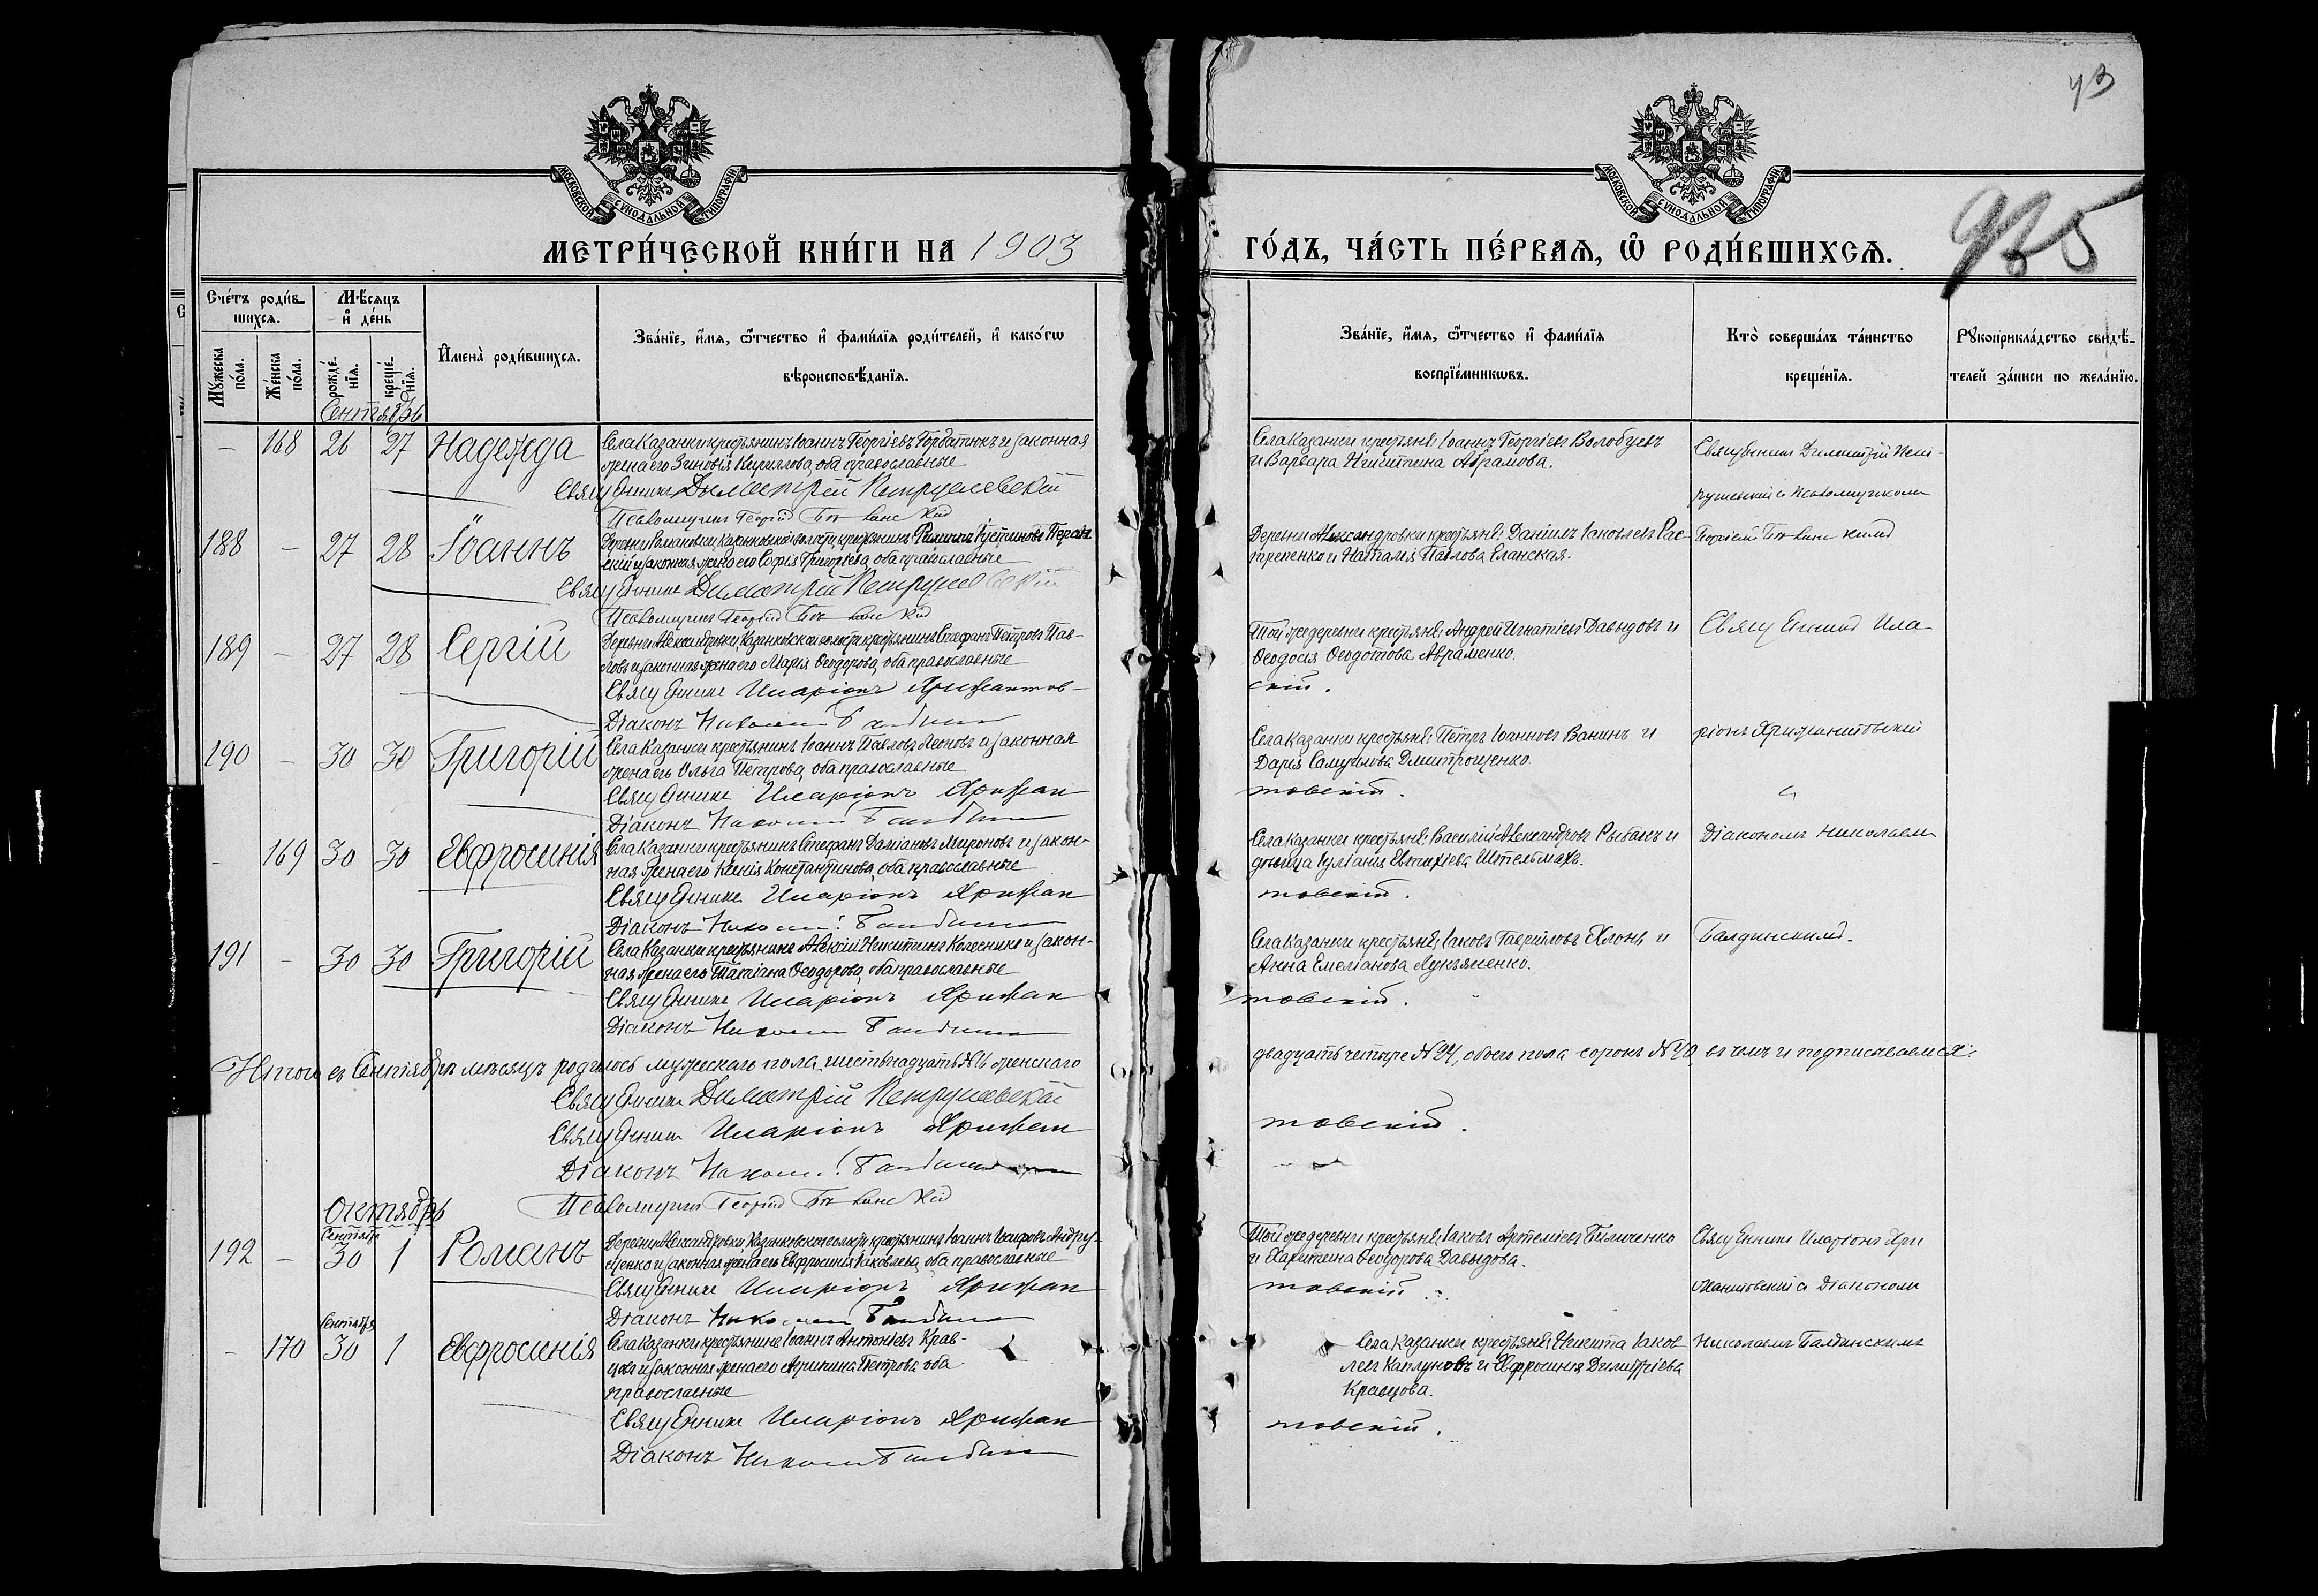 43
МОСКОВСКОЙ СУНОДАЛЬНОЙ ТИПОГРАФІИ
МОСКОВСКОЙ СУНОДАЛЬНОЙ ТИПОГРАФІИ
МЕТРИ́ЧЕСКОЙ КНИ́ГИ НА 1903
ГО́ДЪ, ЧА́СТЬ ПЕ́РВАѦ, Ѡ҆ РОДИ́ВШИХСѦ.
Сче́тъ роди́в-
шихсѧ.
Мѣ́сѧцъ
и҆ де́нь
Мꙋ́жеска
по́ла.
Же́нска
по́ла.
рожде́-
нїѧ.
креще́-
нїѧ.
И҆мена̀ роди́вшихсѧ.
Зва́нїе, и҆́мѧ, ѻ҆́тчество и҆ фами́лїѧ роди́телей, и҆ како́гѡ
вѣроисповѣ́данїѧ.
Зва́нїе, и҆́мѧ, ѻ҆́тчество и҆ фами́лїѧ
воспрїе́мникѡвъ.
Кто̀ соверша́лъ та́инство
креще́нїѧ.
Рꙋкоприкла́дство свидѣ́-
телей за́писи по жела́нїю.
Сентябрь
— 168 26 27 Надежда
Села Казанки крестьянинъ Іоаннъ Георгіевъ Горбатюкъ и законная
жена его Зиновія Кириллова, оба православные
Священникъ Димитрій Петрушевскій
Псаломщикъ Георгій
Села Казанки крестьяне: Іоаннъ Георгіевъ Волобуевъ
и Варвара Никитина Абрамова.
Священникъ Димитрій Пет-
рушевскій съ Псаломщикомъ
188 — 27 28 Іоаннъ
Деревни Романовки, Казанковской волости, крестьянинъ Филиппъ Іустиновъ
и законная жена его Софія Григоріева, оба православные
Священникъ Димитрій Петрушевскій
Псаломщикъ Георгій
Деревни Александровки крестьяне: Даніилъ Іаковлевъ Рас-
и Наталія Павлова Еланская.
Георгіемъ
189 — 27 28 Сергій
Деревни Александровки, Казанковской волости, крестьянинъ Стефанъ Петровъ Пав-
ловъ и законная жена его Марія Ѳеодорова, оба православные
Священникъ Иларіонъ Крыжантов-
Діаконъ Николай
Той же деревни крестьяне: Андрей Игнатіевъ Давыдовъ и
Ѳеодосія Ѳеодотова Авраменко.
скій.
Священникъ Ила
190 — 30 30 Григорій
Села Казанки крестьянинъ Іоаннъ Павловъ Леоновъ и законная
жена его Ольга Петрова, оба православные
Священникъ Иларіонъ Крыжан
Діаконъ Николай
Села Казанки крестьяне: Петръ Іоанновъ Ванинъ и
Дарія Самуилова Дмитрощенко.
товскій.
ріонъ Крыжантовскій
съ
— 169 30 30 Евфросинія
Села Казанки крестьянинъ Стефанъ Даміановъ Мироновъ и закон-
ная жена его Ксенія Константинова, оба православные
Священникъ Иларіонъ Крыжан
Діаконъ Николай
Села Казанки крестьяне: Василій Александровъ Рыбакъ и
дѣвица Іуліанія Евтихіева Штельмахъ.
товскій.
Діакономъ Николаемъ
191 — 30 30 Григорій
Села Казанки крестьянинъ Алексій Никитинъ Колесникъ и закон-
ная жена его Татіана Ѳеодорова, оба православные
Священникъ Иларіонъ Крыжан
Діаконъ Николай
Села Казанки крестьяне: Іаковъ Гавриловъ Хлонь и
Анна Емеліанова Лукьяненко.
товскій.
Балдинскимъ.
Итого въ Сентябрѣ мѣсяцѣ родилось мужескаго пола шестьнадцать №16 женскаго
двадцать четыре №24, обоего пола сорокъ №40, въ чемъ и подписываемся:
Священникъ Димитрій Петрушевскій
Священникъ Иларіонъ Крыжан
товскій.
Діаконъ Николай
Псаломщикъ Георгій
Октябрь
Сентября
192 — 30 1 Романъ
Деревни Александровки, Казанковской волости, крестьянинъ Іоаннъ Іосифовъ Андру-
щенко и законная жена его Евфросинія Іаковлева, оба православные
Священникъ Иларіонъ Крыжан
Діаконъ Николай
Той же деревни крестьяне: Іаковъ Артеміевъ Биличенко
и Харитина Ѳеодорова Давыдова.
товскій.
Священникъ Иларіонъ Кры
жантовскій съ Діакономъ
Сентября
— 170 30 1 Евфросинія
Села Казанки крестьянинъ Іоаннъ Антоніевъ Крав-
цовъ и законная жена его Агрипина Петрова, оба
православные
Священникъ Иларіонъ Крыжан
Діаконъ Николай
Села Казанки крестьяне: Никита Іаков-
левъ Каплуновъ и Евфросинія Димитріева
Кравцова.
товскій.
Николаемъ Балдинскимъ